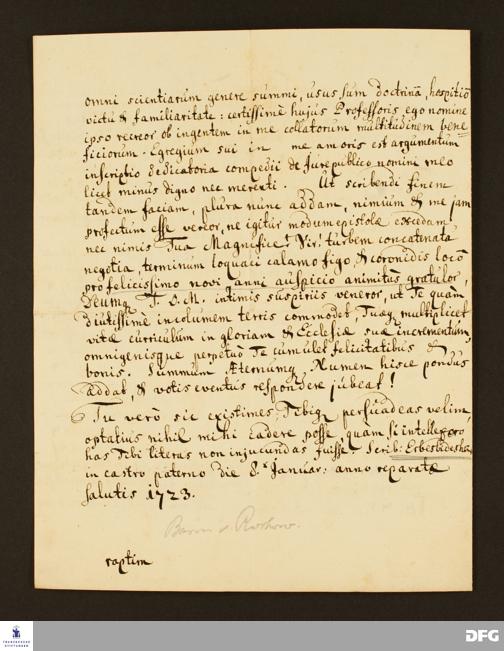 omni scientiarum genere summi, usus sum doctrinâ, hospitiô
victu & familiaritate: certissimè hujus Professoris ego nomine
ipso recreor ob ingentem in me collatorum multitudinem bene
ficiorum. Egregium sui in me amoris est argumentum
inscriptio dedicatoria compedii de Jure publico nomini meo
licet minus digno nec merenti. Ut scribendi finem
tandem faciam, plura nunc addam, nimium & me jam
profectum esse vereor, ne igitur modum epistolæ excedam,
nec nimis Tua Magnifice Vir! turbem concatenata
negotia, terminum loquaci calamo figo, & coronidis locô
pro felicissimo novi anni auspicio animitus gratulor,
Deumq T. O. M. intimis suspiriis veneror, ut Te quàm
diutissimè incolumem terris commodet, Tuæq multiplicet
vitæ curriculum in gloriam & Ecclesiæ suæ incrementum,
omnigenisque perpetuò Te cumulet felicitatibus &
bonis. Summum Æternumq Numen hisce pondus
addat, & votis eventus respondere jubeat!
Tu verò sic existimes, Tibiq persuadeas velim,
optatius nihil mihi cadere posse, quam si intellexero
has Tibi literas non injucundas fuisse. Scrib:
in castro paterno die 8. Januar: anno reparatæ
salutis 1723.
Baron v.
raptim
FRANCKESCHE
STIFTUNGEN
DFG